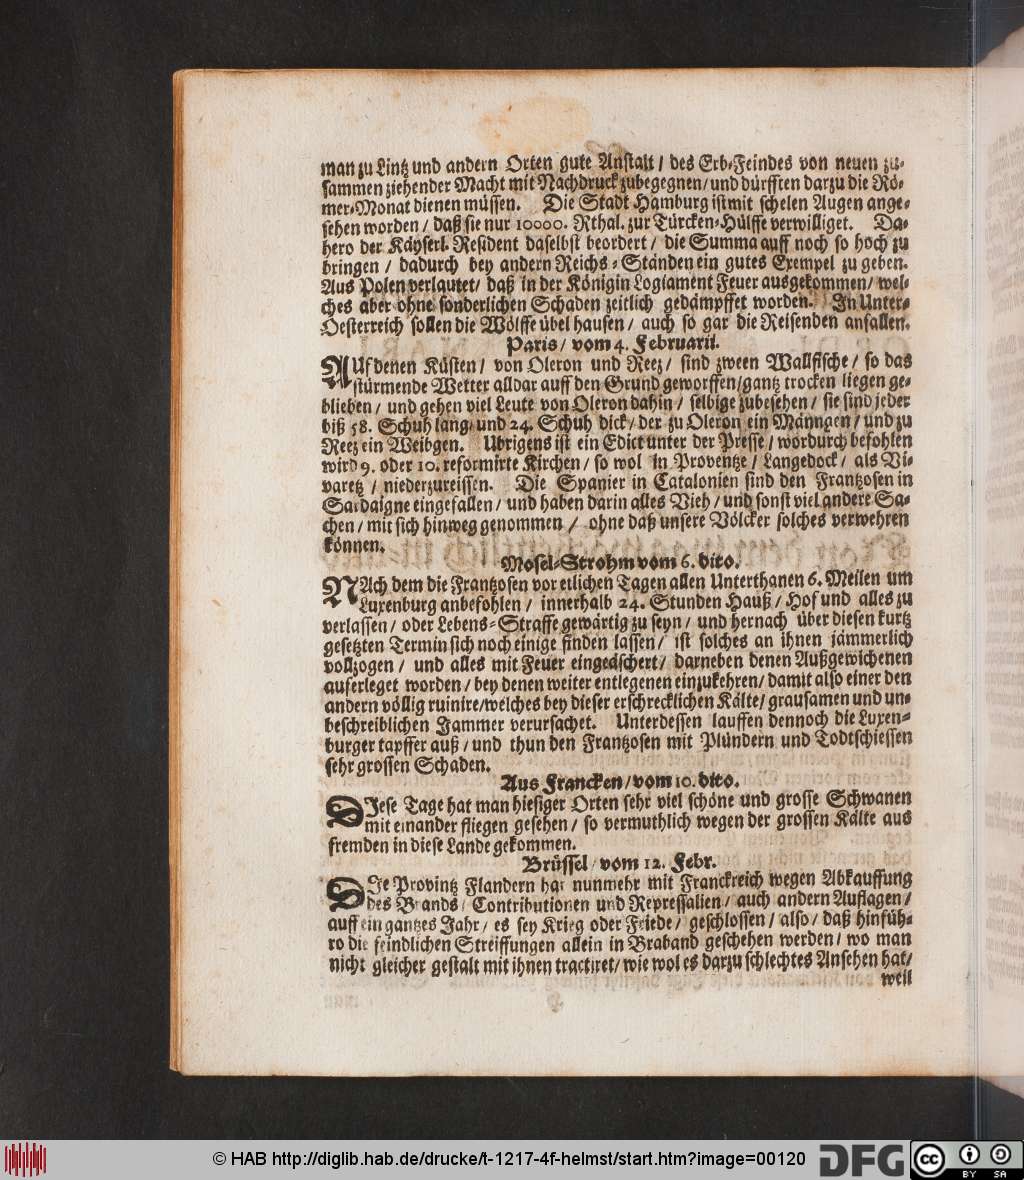 man zu Lintz und andern Orten gute Anstalt / des Erb-Feindes von neuen zu-
sammen ziehender Macht mit Nachdruck zubegegnen / und dürfften darzu die Rö-
mer-Monat dienen müssen. Die Stadt Hamburg ist mit schelen Augen ange-
sehen worden / daß sie nur 10000. Rthal. zur Türcken-Hülffe verwilliget. Da-
hero der Käyserl. Resident daselbst beordert / die Summa auff noch so hoch zu
bringen / dadurch bey andern Reichs-Ständen ein gutes Exempel zu geben.
Aus Polen verlautet / daß in der Königin Logiament Feuer ausgekommen / wel-
ches aber ohne sonderlichen Schaden zeitlich gedämpffet worden. In Unter-
Oesterreich sollen die Wölffe übel hausen / auch so gar die Reisenden anfallen.
Paris / vom 4. Februarii.
AUf denen Küsten / von Oleron und Reez / sind zween Wallfische / so das
stürmende Wetter alldar auff den Grund geworffen / gantz trocken liegen ge-
blieben / und gehen viel Leute von Oleron dahin / selbige zubesehen / sie sind jeder
biß 58. Schuh lang / und 24. Schuh dick / der zu Oleron ein Männgen / und zu
Reez ein Weibgen. Ubrigens ist ein Edict unter der Presse / wordurch befohlen
wird 9. oder 10. reformirte Kirchen / so wol in Proventze / Langedock / als Vi-
varetz / niederzureissen. Die Spanier in Catalonien sind den Frantzosen in
Sardaigne eingefallen / und haben darin alles Vieh / und sonst viel andere Sa-
chen / mit sich hinweg genommen / ohne daß unsere Völcker solches verwehren
können.
Mosel-Strohm vom 6. dito.
NAch dem die Frantzosen vor etlichen Tagen allen Unterthanen 6. Meilen um
Luxenburg anbefohlen / innerhalb 24. Stunden Hauß / Hof und alles zu
verlassen / oder Lebens-Straffe gewärtig zu seyn / und hernach über diesen kurtz
gesetzten Termin sich noch einige finden lassen / ist solches an ihnen jämmerlich
vollzogen / und alles mit Feuer eingeäschert / darneben denen Außgewichenen
auferleget worden / bey denen weiter entlegenen einzukehren / damit also einer den
andern völlig ruinire / welches bey dieser erschrecklichen Kälte / grausamen und un-
beschreiblichen Jammer verursachet. Unterdessen lauffen dennoch die Luxen-
burger tapffer auß / und thun den Frantzosen mit Plündern und Todtschiessen
sehr grossen Schaden.
Aus Francken / vom 10. dito.
DIese Tage hat man hiesiger Orten sehr viel schöne und grosse Schwanen
mit einander fliegen gesehen / so vermuthlich wegen der grossen Kälte aus
fremden in diese Lande gekommen.
Brüssel / vom 12. Febr.
DIe Provintz Flandern hat nunmehr mit Franckreich wegen Abkauffung
des Brands / Contributionen und Repressalien / auch andern Auflagen /
auff ein gantzes Jahr / es sey Krieg oder Friede / geschlossen / also / daß hinfüh-
ro die feindlichen Streiffungen allein in Braband geschehen werden / wo man
nicht gleicher gestalt mit ihnen tractiret / wie wol es darzu schlechtes Ansehen hat /
weil
© HAB http://diglib.hab.de/drucke/t-1217-4f-helmst/start.htm?image=00120
DFG
cc BY SA